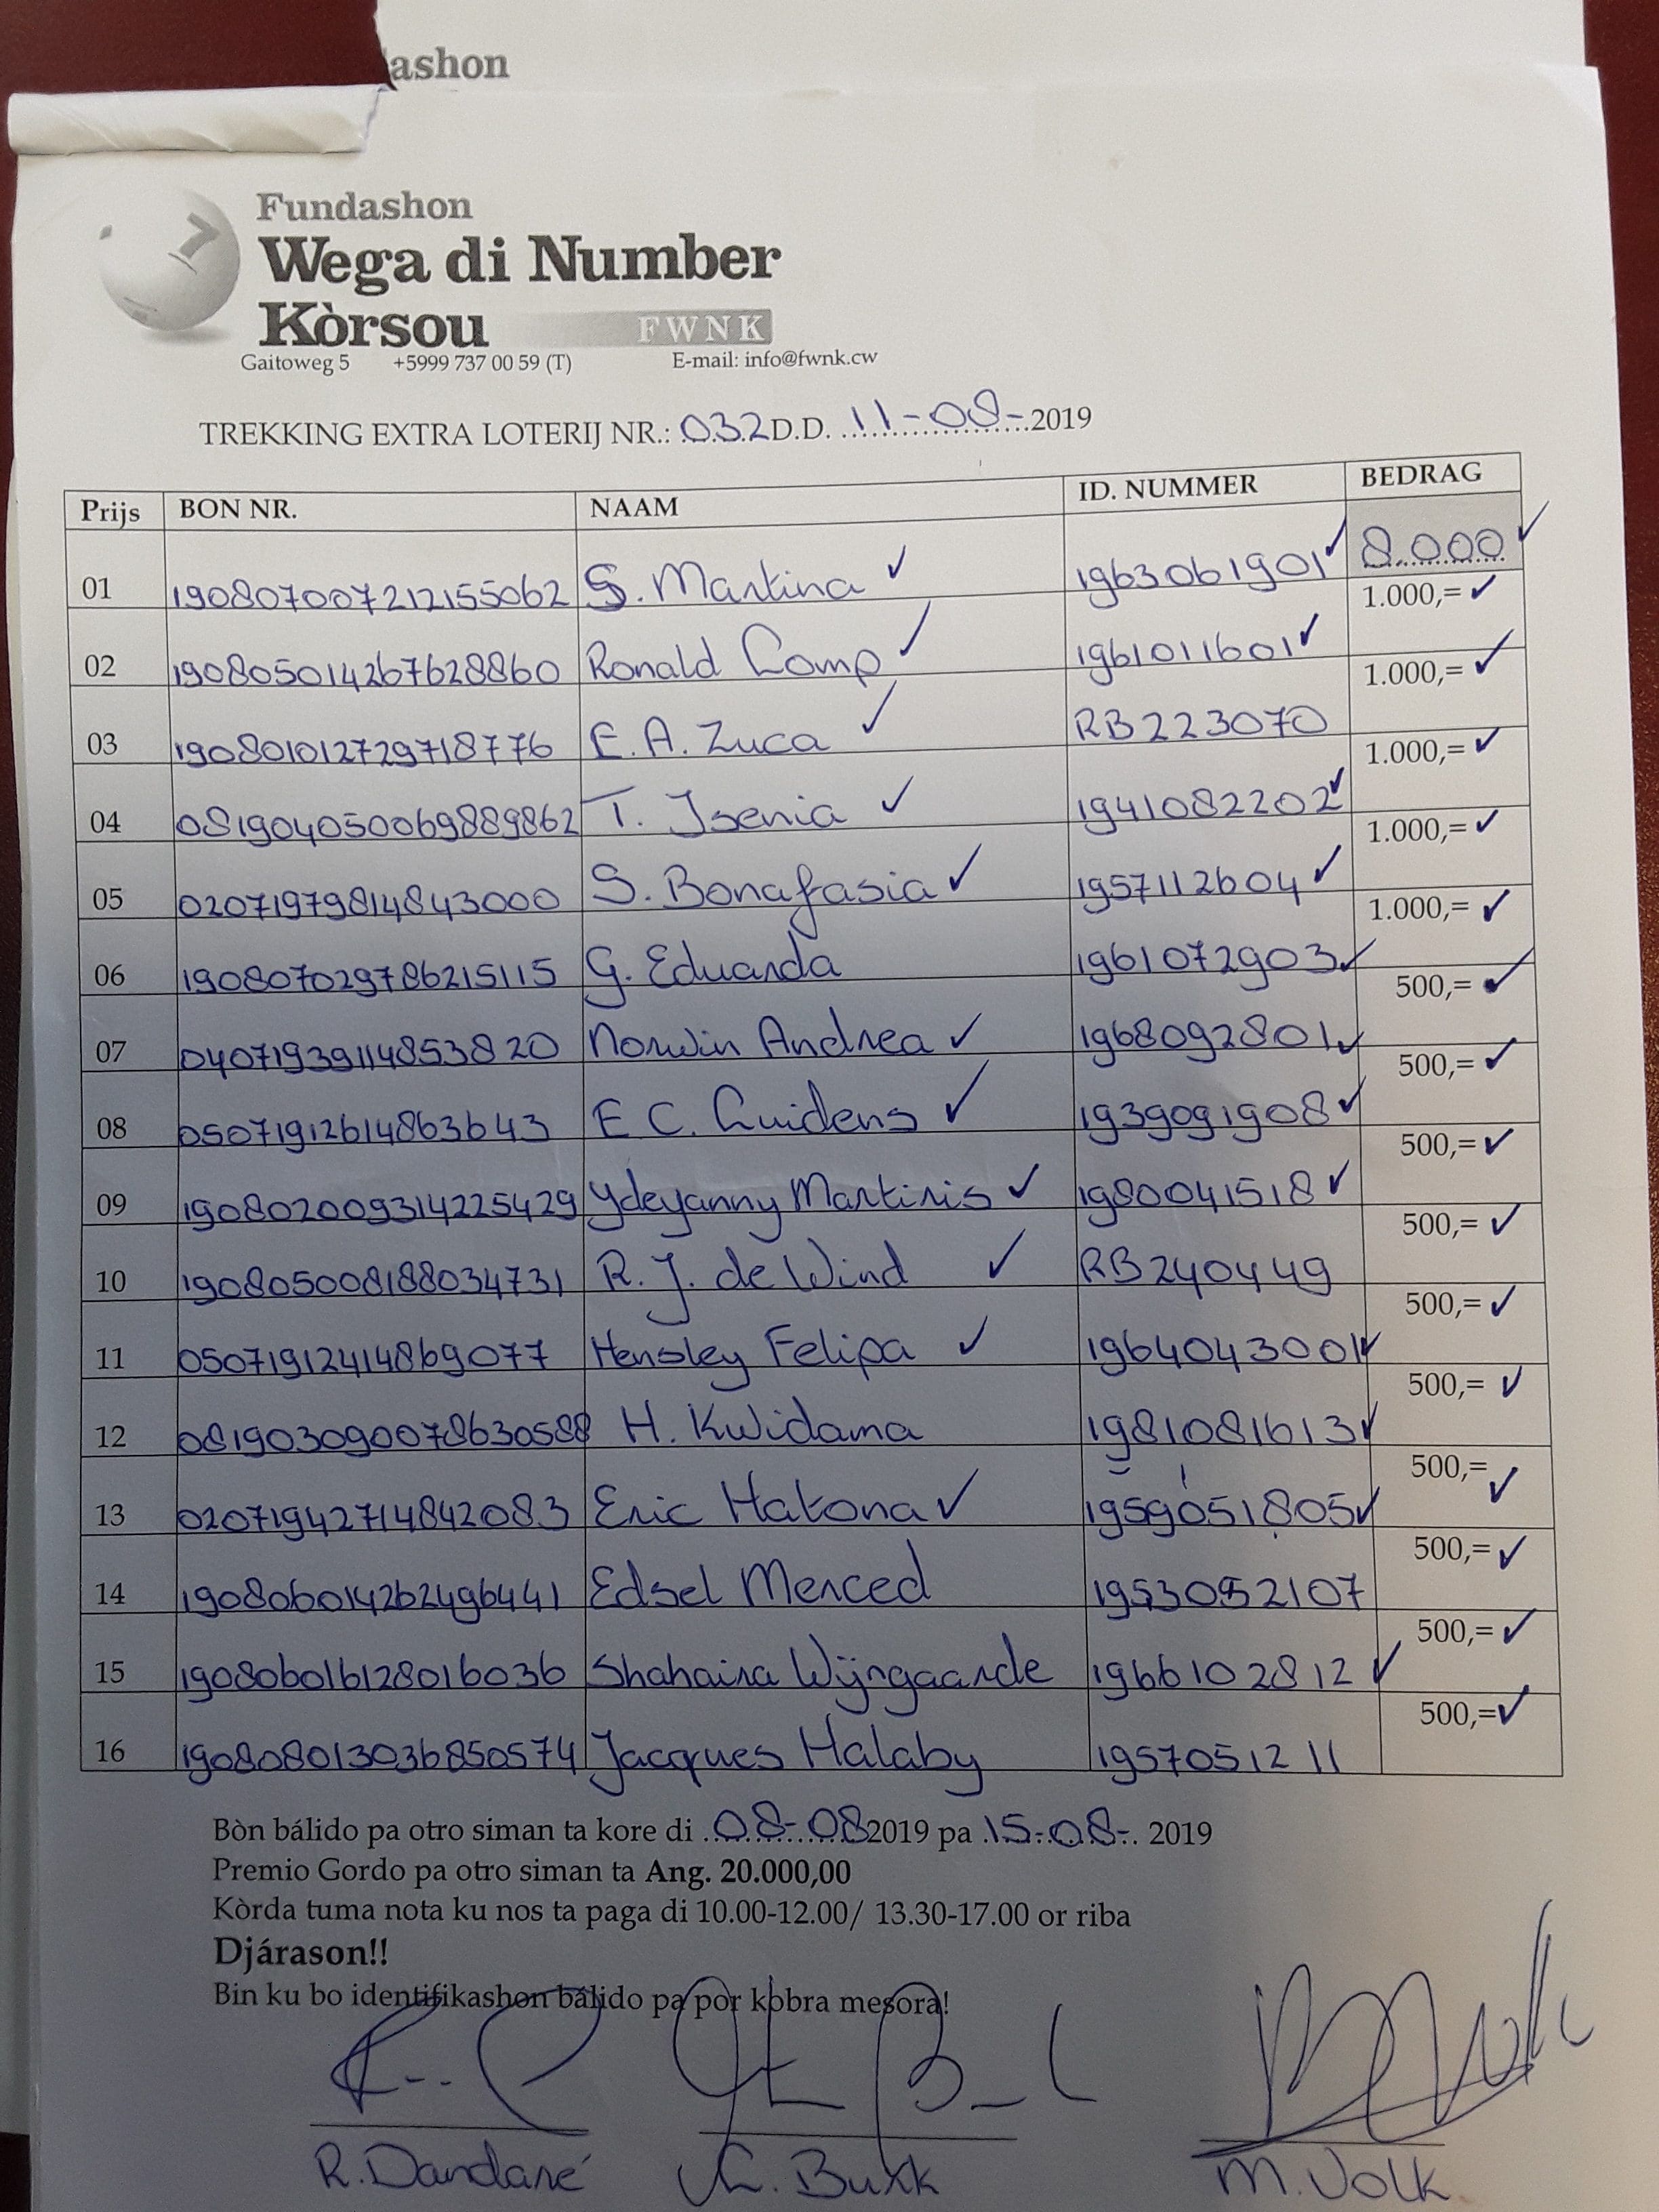 ashon
7
Fundashon
Wega di Number
Kòrsou FWNK
Gaitoweg 5 +5999 737 00 59 (T) E-mail: info@fwnk.cw
TREKKING EXTRA LOTERIJ NR.: 032 D.D. 11-08-2019
Prijs BON NR. NAAM ID. NUMMER BEDRAG
01 190807007212155062 S. Martina 1963061901 8.000
02 190805014267628860 Ronald Comp 1961011601 1.000,=
03 190801012729718776 E. A. Zuca RB223070 1.000,=
04 081904050069889862 T. Isenia 1941082202 1.000,=
05 02071979814843000 S. Bonafasia 1957112604 1.000,=
06 190807029786215115 G. Eduarda 1961072903 1.000,=
07 04071939114853820 Norwin Andrea 1968092801 500,=
08 05071912614863643 E C. Cuidens 1939091908 500,=
09 1908020093142254​29 Ydeyanny Martinis 1980041518 500,=
10 190805008188034731 R. J. de Wind RB240449 500,=
11 05071912414869077 Hensley Felipa 1964043001 500,=
12 081903090078630588 H. Kwidama 1981081613 500,=
13 02071942714842083 Eric Hatona 1959051805 500,=
14 190806014262496441 Edsel Merced 1953052107 500,=
15 190806016128016036 Shahaira Wijngaarde 1966102812 500,=
16 190808013036850574 Jacques Halaby 1957051211 500,=
Bòn bálido pa otro siman ta kore di 08-08 2019 pa 15-08-. 2019
Premio Gordo pa otro siman ta Ang. 20.000,00
Kòrda tuma nota ku nos ta paga di 10.00-12.00/ 13.30-17.00 or riba
Djárason!!
Bin ku bo identifikashon bálido pa por kobra mesora!
R. Dandaré Burk M. Volk